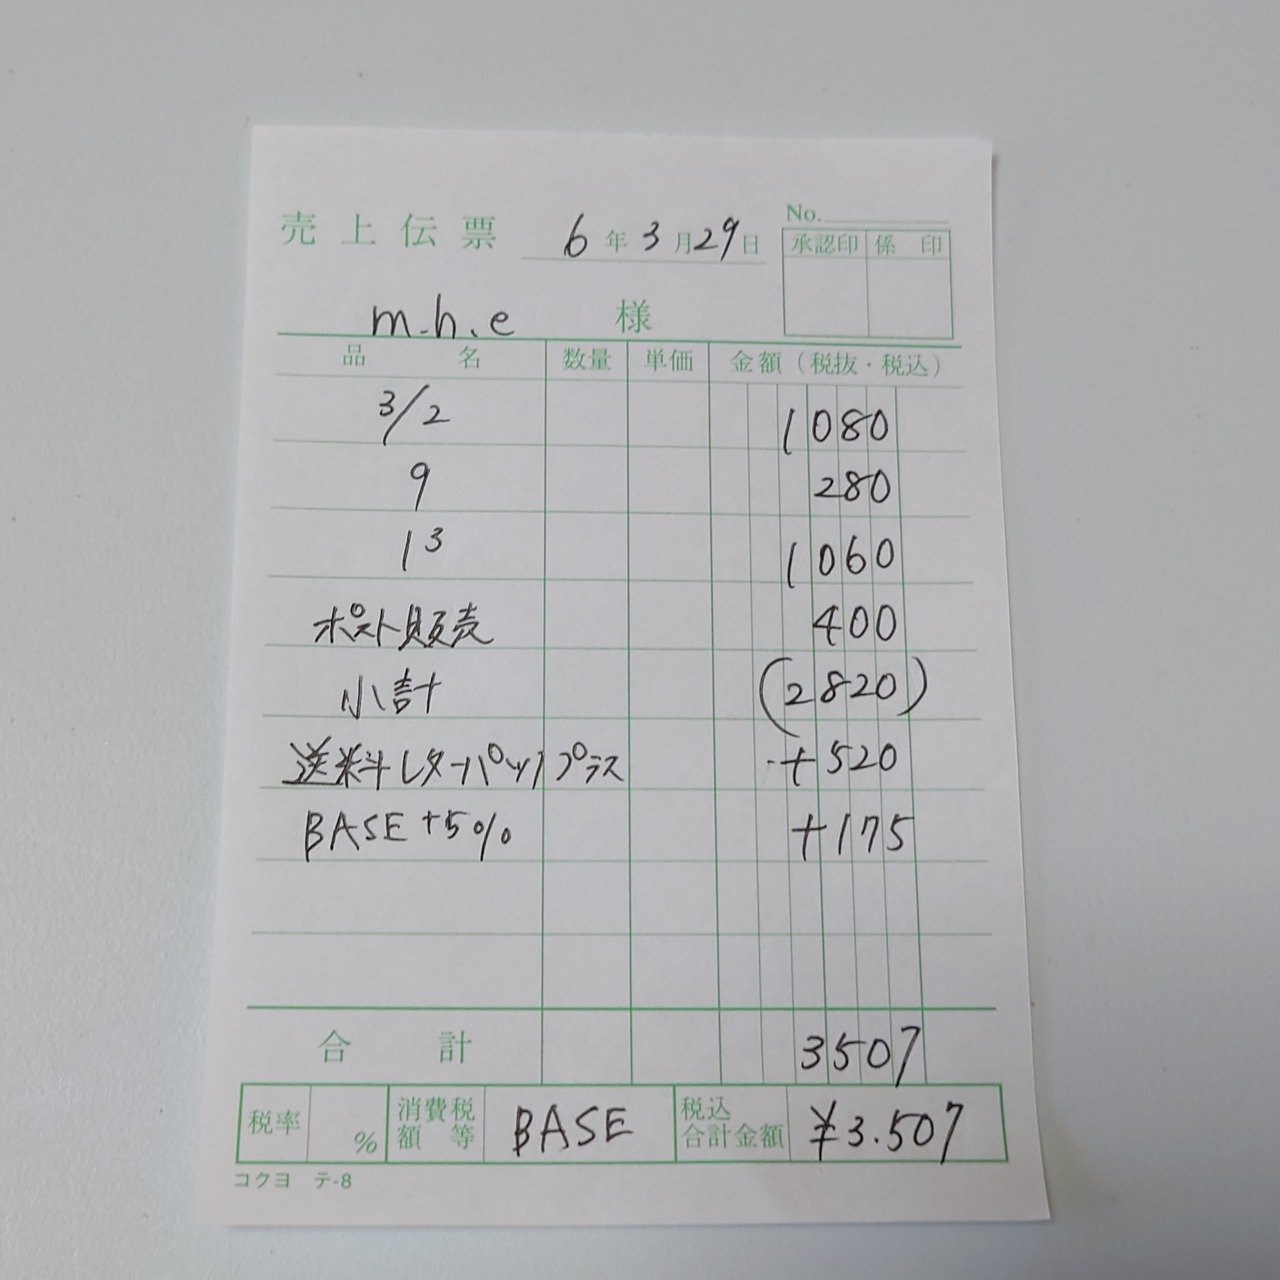 売上伝票 6年3月29日
No.
承認印 係印
m.h.e 様
品名 数量 単価 金額(税抜・税込)
3/2 1080
9 280
13 1060
ポスト販売 400
小計 (2820)
送料レターパックプラス +520
BASE+5% +175
合計 3507
税率 % 消費税額等 BASE 税込合計金額 ¥3.507
コクヨ テ-8